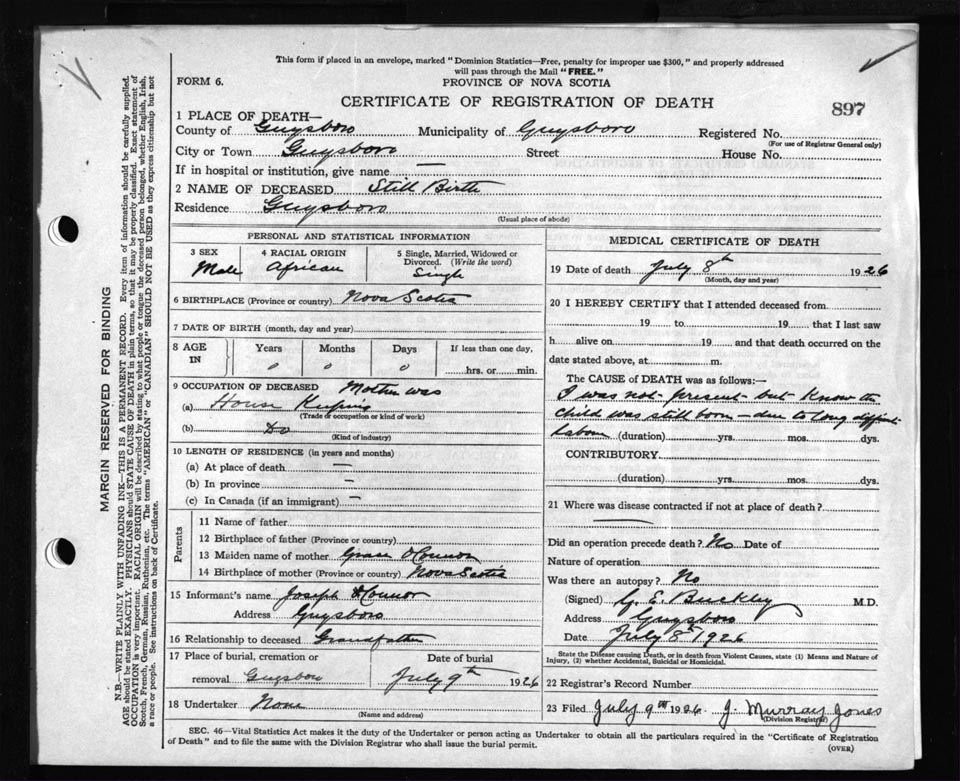 This form if placed in an envelope, marked "Dominion Statistics—Free, penalty for improper use $300," and properly addressed
will pass through the Mail "FREE."
FORM 6.
PROVINCE OF NOVA SCOTIA
CERTIFICATE OF REGISTRATION OF DEATH
897
1 PLACE OF DEATH—
County of Guysboro Municipality of Guysboro Registered No.
(For use of Registrar General only)
City or Town Guysboro Street House No.
If in hospital or institution, give name —
2 NAME OF DECEASED Still Birth
Residence Guysboro
(Usual place of abode)
PERSONAL AND STATISTICAL INFORMATION
3 SEX 4 RACIAL ORIGIN 5 Single, Married, Widowed or
Divorced. (Write the word)
Male African Single
6 BIRTHPLACE (Province or country) Nova Scotia
7 DATE OF BIRTH (month, day and year)
8 AGE IN Years Months Days If less than one day,
0 0 0 hrs. or min.
9 OCCUPATION OF DECEASED Mother was
(a) House Keeping
(Trade or occupation or kind of work)
(b) Do
(Kind of industry)
10 LENGTH OF RESIDENCE (in years and months)
(a) At place of death —
(b) In province —
(c) In Canada (if an immigrant) —
Parents
11 Name of father
12 Birthplace of father (Province or country)
13 Maiden name of mother Grace O'Connor
14 Birthplace of mother (Province or country) Nova Scotia
15 Informant's name Joseph O'Connor
Address Guysboro
16 Relationship to deceased Grandfather
17 Place of burial, cremation or Date of burial
removal Guysboro July 9th 1926
18 Undertaker None
(Name and address)
MEDICAL CERTIFICATE OF DEATH
19 Date of death July 8th 1926
(Month, day and year)
20 I HEREBY CERTIFY that I attended deceased from
19 to 19 that I last saw
h alive on 19 and that death occurred on the
date stated above, at m.
The CAUSE of DEATH was as follows:—
I was not present but know the
child was still born — due to long difficult
labour (duration) yrs. mos. dys.
CONTRIBUTORY
(duration) yrs. mos. dys.
21 Where was disease contracted if not at place of death?
Did an operation precede death? No Date of
Nature of operation
Was there an autopsy? No
(Signed) G. E. Buckley M.D.
Address Guysboro
Date July 8th 1926
State the Disease causing Death, or in death from Violent Causes, state (1) Means and Nature of
Injury, (2) whether Accidental, Suicidal or Homicidal.
22 Registrar's Record Number
23 Filed July 9th 1926 J. Murray Jones
(Division Registrar)
SEC. 46—Vital Statistics Act makes it the duty of the Undertaker or person acting as Undertaker to obtain all the particulars required in the "Certificate of Registration
of Death" and to file the same with the Division Registrar who shall issue the burial permit.
(OVER)
MARGIN RESERVED FOR BINDING
N.B.—WRITE PLAINLY WITH UNFADING INK—THIS IS A PERMANENT RECORD. Every item of information should be carefully supplied.
AGE should be stated EXACTLY. PHYSICIANS should STATE CAUSE OF DEATH in plain terms, so that it may be properly classified. Exact statement of
OCCUPATION is very important. RACIAL ORIGIN will be described by stating to what people or tongue the deceased person belonged, whether English, Irish,
Scotch, French, German, Russian, Ruthenian, etc. The terms "AMERICAN" or "CANADIAN" SHOULD NOT BE USED as they express citizenship but not
a race or people. See instructions on back of Certificate.